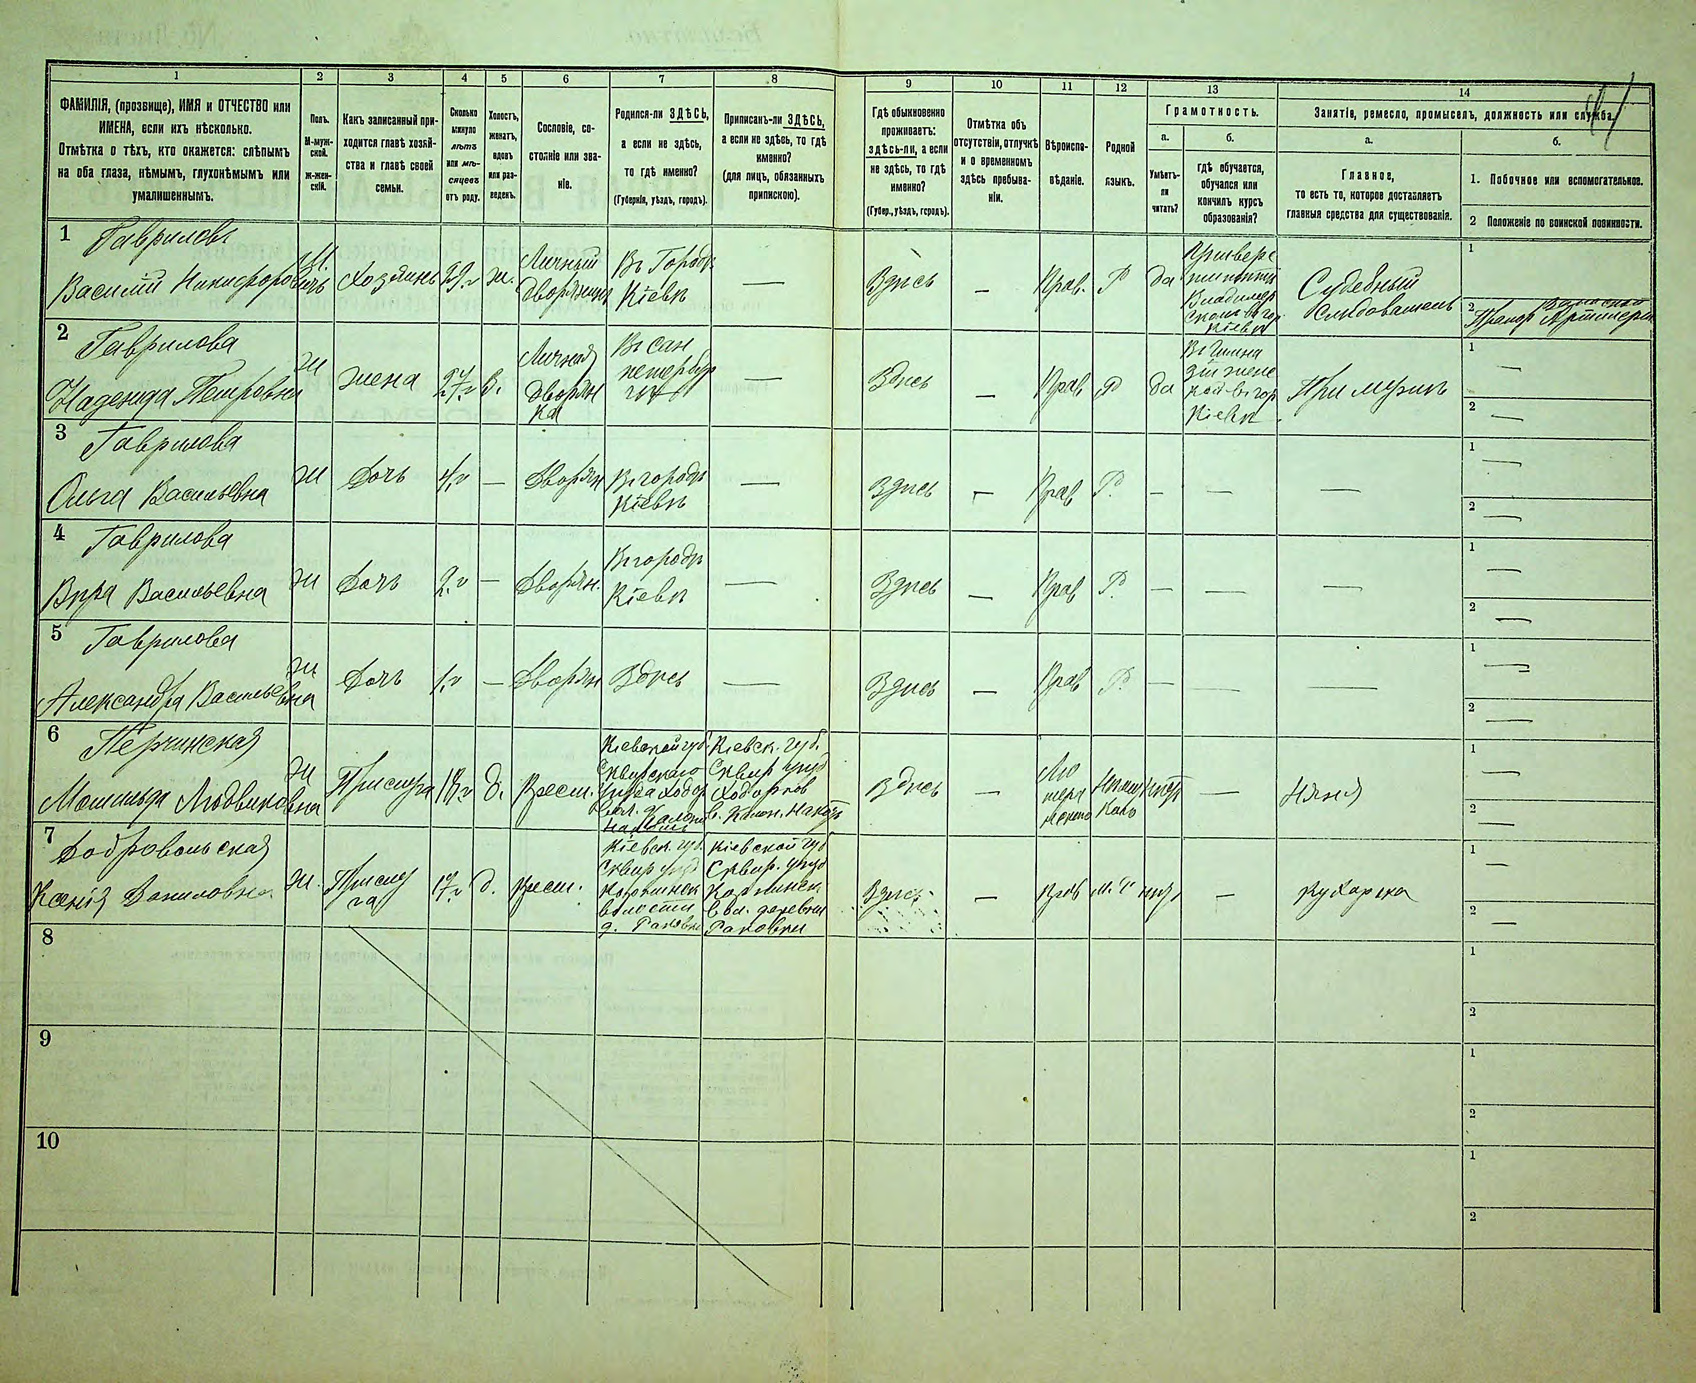 1
2
3
4
5
6
7
8
9
10
11
12
13
14
ФАМИЛІЯ, (прозвище), ИМЯ и ОТЧЕСТВО или
ИМЕНА, если ихъ нѣсколько.
Отмѣтка о тѣхъ, кто окажется: слѣпымъ
на оба глаза, нѣмымъ, глухонѣмымъ или
умалишеннымъ.
Полъ.
М-муж-
ской.
ж-жен-
скій.
Какъ записанный при-
ходится главѣ хозяй-
ства и главѣ своей
семьи.
Сколько
минуло
лѣтъ
или мѣ-
сяцевъ
отъ роду.
Холостъ,
женатъ,
вдовъ
или раз-
веденъ.
Сословіе, со-
стояніе или зва-
ніе.
Родился-ли ЗДѢСЬ,
а если не здѣсь,
то гдѣ именно?
(Губернія, уѣздъ, городъ).
Приписанъ-ли ЗДѢСЬ,
а если не здѣсь, то гдѣ
именно?
(для лицъ, обязанныхъ
припискою).
Гдѣ обыкновенно
проживаетъ:
здѣсь-ли, а если
не здѣсь, то гдѣ
именно?
(Губер., уѣздъ, городъ).
Отмѣтка объ
отсутствіи, отлучкѣ
и о временномъ
здѣсь пребыва-
ніи.
Вѣроиспо-
вѣданіе.
Родной
языкъ.
Грамотность.
а.
Умѣетъ-
ли
читать?
б.
гдѣ обучается,
обучался или
кончилъ курсъ
образованія?
Занятіе, ремесло, промыселъ, должность или служба.
а.
Главное,
то есть то, которое доставляетъ
главныя средства для существованія.
б.
1. Побочное или вспомогательное.
2 Положеніе по воинской повинности.
1
Гавриловъ
Василій Никифоровичъ
М
Хозяинъ
29
ж.
Личный
Дворянинъ
Въ Городѣ
Кіевѣ
—
Здѣсь
—
Прав.
Р
да
Владимір
Кіевѣ
Судебный
Слѣдователь
1
2
Прапор Артиллеріи
2
Гаврилова
Надежда Петровна
ж
жена
27
З.
Личная
Дворян
ка
Въ Сан
петербур
гѣ
—
Здѣсь
—
Прав
Р
да
Въ Гимна
зіи жене
кой въ гор
Кіевѣ
При мужѣ
1 —
2 —
3
Гаврилова
Ольга Васильевна
ж
Дочь
4
—
Дворян
Въ городѣ
Кіевѣ
—
Здѣсь
—
Прав
Р.
—
—
—
1 —
2 —
4
Гаврилова
Вѣра Васильевна
ж
Дочь
2
—
Дворян.
Въ городѣ
Кіевѣ
—
Здѣсь
—
Прав
Р.
—
—
—
1 —
2 —
5
Гаврилова
Александра Васильевна
ж
Дочь
1
—
Дворян
Здѣсь
—
Здѣсь
—
Прав
Р.
—
—
—
1 —
2 —
6
Перчинская
Матильда Людвиковна
ж
Прислуга
18
д.
Крест.
Кіевской губ.
Сквирскаго
уѣзда Ходор
Кіевск. губ.
Сквир уѣзд
Ходорков
Здѣсь
—
Лю
тера
нско
нѣтъ
—
Няня
1 —
2 —
7
Добровольская
Ксенія Даниловна.
ж.
Прислу
га
17
д.
крест.
Кіевск. губ.
Сквир уѣзд
волости
д. Раковки
Кіевской губ
Сквир. уѣзд
в вол. деревни
Раковки
Здѣсь
—
прав
—
Кухарка
1 —
2 —
8
1
2
9
1
2
10
1
2